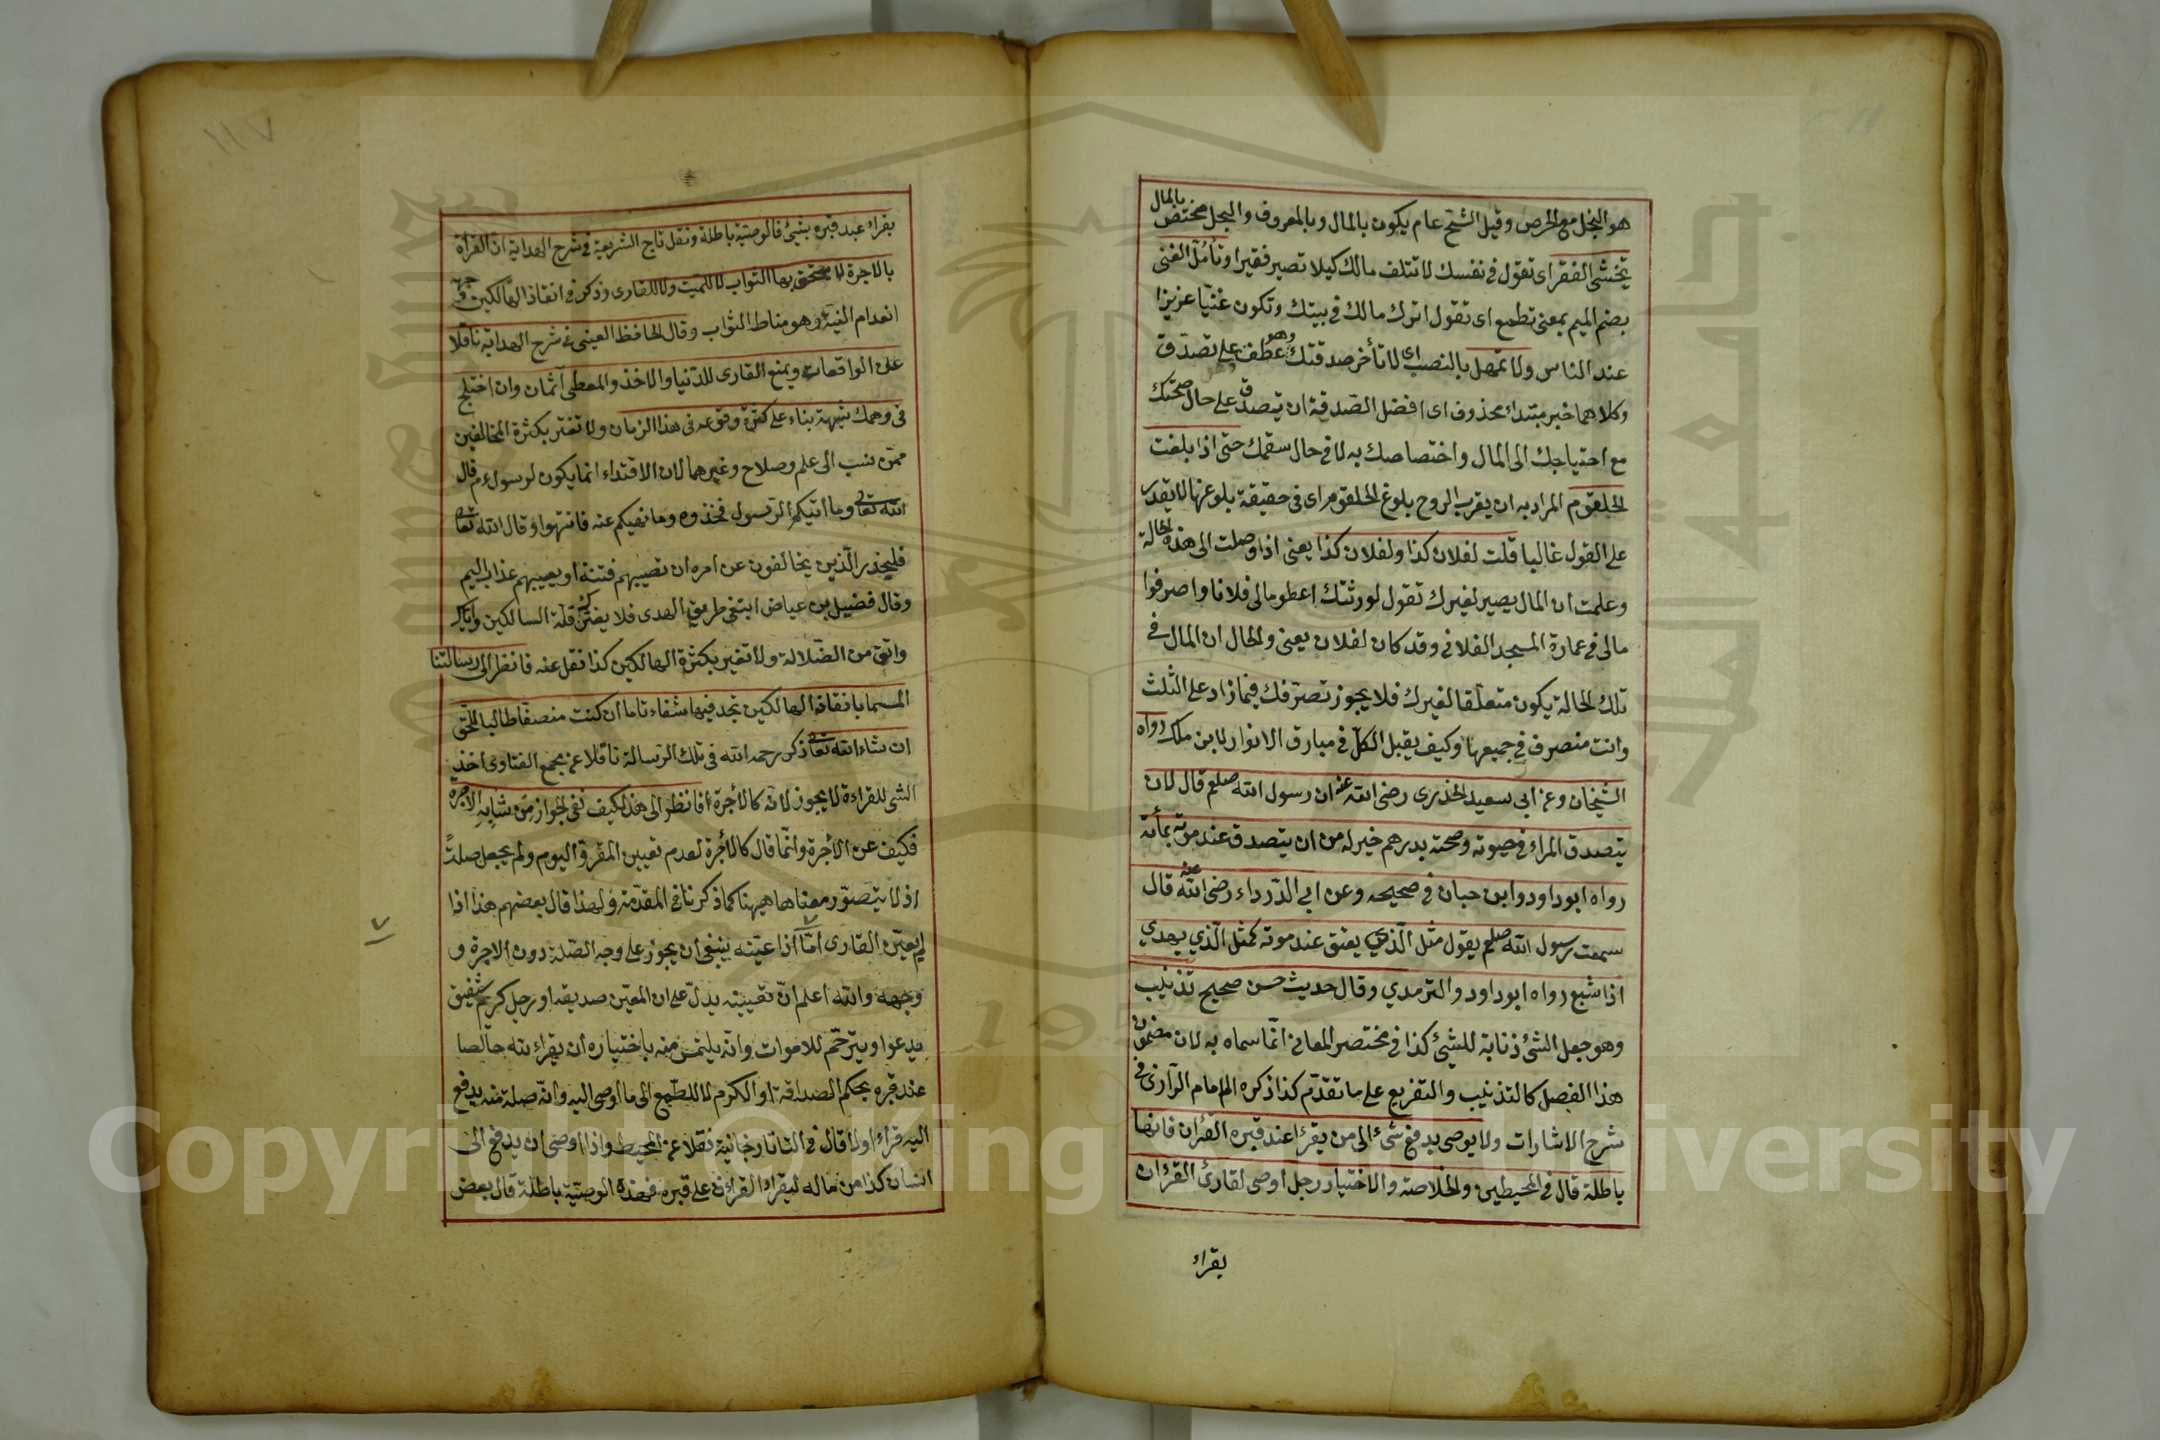 هو البخل مع الحرص وقيل الشح عام يكون بالمال وبالمعروف والبخل مختص بالمال
تخشى الفقر اى تقول فى نفسك لا تتلف مالك كيلا تصير فقيرا وتأمل الغنى
بضم الميم بمعنى تطمع اى تقول اترك مالك فى بيتك وتكون غنيا عزيزا
عند الناس ولا تمهل بالنصب اى لا تأخر صدقتك وهو عطف على تصدق
وكلاهما خبر مبتداء محذوف اى افضل الصدقة ان يتصدق على حال صحتك
مع احتياجك الى المال واختصاصك به لا فى حال سقمك حتى اذا بلغت
الحلقوم المراد به ان يقرب الروح بلوغ الحلقوم اى فى حقيقة بلوغها لا يقدر
على القول غالبا قلت لفلان كذا ولفلان كذا يعنى اذا وصلت الى هذه الحالة
وعلمت ان المال يصير لغيرك تقول لورثتك اعطو مالى فلانا واصرفوا
مالى فى عمارة المسجد الفلانى وقد كان لفلان يعنى والحال ان المال فى
تلك الحالة يكون متعلقا لغيرك فلا يجوز تصرفك فيما زاد على الثلث
وانت متصرف فى جميعها وكيف يقبل الكل فى مبارق الانوار لابن ملك رواه
الشيخان وعن ابى سعيد الخدرى رضى الله عنه ان رسول الله صلعم قال لان
يتصدق المراء فى حيوته وصحته بدرهم خير له من ان يتصدق عند موته بمأته
رواه ابو داود وابن حبان فى صحيحه وعن ابى الدرداء رضى الله عنه قال
سمعت رسول الله صلعم يقول مثل الذى يعتق عند موته كمثل الذي يهدي
اذا شبع رواه ابو داود والترمدي وقال حديث حسن صحيح تذنيب
وهو جعل الشئ ذنابة للشئ كذا فى مختصر المعانى انما سماه به لان مضمون
هذا الفصل كالتذنيب والتفريع على ما تقدم كذا ذكره الامام الرازى فى
شرح الاشارات ولا يوصى بدفع شئ الى من يقرأ عند قبره القران فانها
باطلة قال فى المحيطين والخلاصة والاختيار رجل اوصى لقارئ القرءان
يقراء
١١٧
يقراء عند قبره بشئ فالوصية باطلة ونقل تاج الشريعة فى شرح الهداية ان القرأة
بالاجرة لا يستحق بها الثواب لا للميت ولا للقارى وذكر فى انقاذ الهالكين
انعدام النية وهو مناط الثواب وقال الحافظ العينى فى شرح الهداية ناقلا
على الواقعات ويمنع القارى للدنيا والاخذ والمعطى آثمان وان اختلج
فى وهمك شبهة بناء على كثرة وقوعه فى هذا الزمان ولا تغتر بكثرة المخالفين
ممن نسب الى علم وصلاح وغيرهما لان الاقتداء انما يكون لرسول عم قال
الله تعالى وما اتيكم الرسول فخذوه وما نهيكم عنه فانتهوا وقال الله تعالى
فليحذر الذين يخالفون عن امره ان تصيبهم فتنة او يصيبهم عذاب اليم
وقال فضيل بن عياض ابتغى طريق الهدى فلا يضرك قلة السالكين واياك
واتق من الضلالة ولا تغتر بكثرة الهالكين كذا نقل عنه فانظر الى رسالتنا
المسما بانقاذ الهالكين تجد فيها شفاء تاما ان كنت منصفا طالبا للحق
ان شاء الله تعالى ذكر رحمه الله فى تلك الرسالة ناقلا عن مجمع الفتاوى اخذ
الشئ للقراءة لا يجوز لانه كالأجرة فانظر الى هذا كيف نفى الجواز من شابه الاجرة
فكيف عن الأجرة وانما قال كالأجرة لعدم تعيين المقرؤ اليوم ولم يجعل صلة
اذ لا يتصور معناها هيهنا كما ذكرنا فى المقدمة ولهذا قال بعضهم هذا اذا
لم يعين القارى أما اذا عينه ينبغى ان يجوز على وجه الصلة دون الاجرة و
وجهه والله اعلم ان تعيينه يدل على ان المعين صديقه او رجل كريم شفيق
يدعوا ويترحم للاموات وانه يلتمس منه باختياره ان يقراء لله خالصا
عند قبره بحكم الصداقة او الكرم لا للطمع الى ما اوصى اليه وانه صلة منه يدفع
اليه قراء اولا قال فى التاتارخانية نقلا عن المحيط واذا اوصى ان يدفع الى
انسان كذا من ماله ليقراء القرءان على قبره فهذه الوصية باطلة قال بعض
Copyright © King Saud University
جامعة الملك سعود
1957